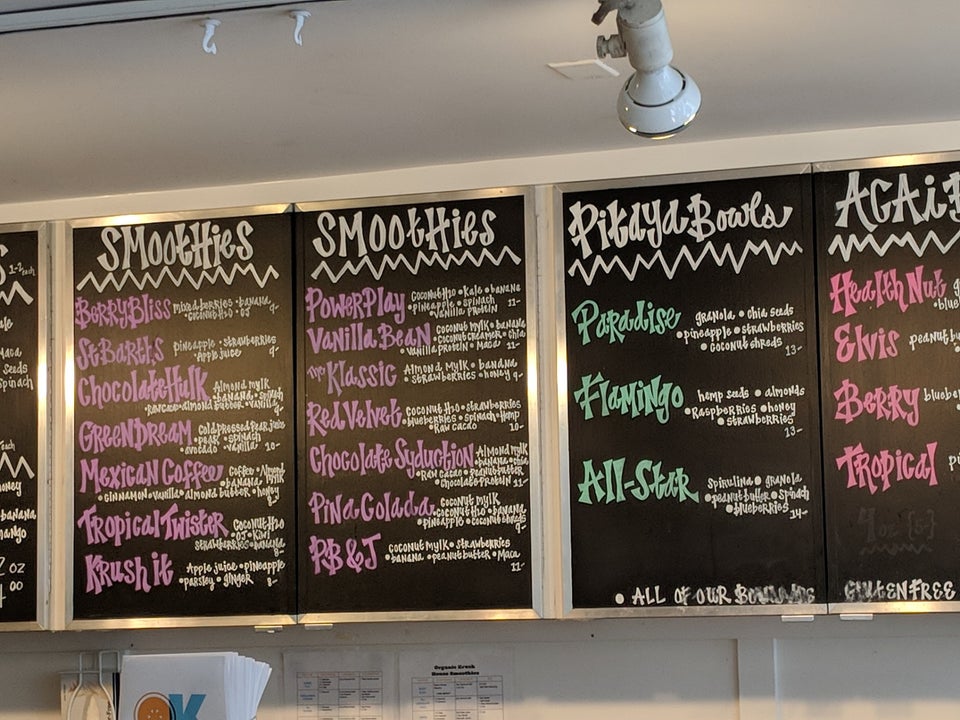 1-2 each
Maca
Seeds
Spinach
each
honey
banana
mango
oz
00
SMOOTHIES
BerryBliss mixed berries • banana
• coconut H2O • OJ 9-
St Barths pineapple • strawberries
• Apple juice 9-
Chocolate Hulk Almond mylk
• banana • spinach
• Raw cacao • almond butter • vanilla 9-
Green Dream coldpressed pear juice
• pear • spinach
• avocado • vanilla 10-
Mexican Coffee Coffee • Almond mylk
• banana
• cinnamon • vanilla • almond butter • honey
9-
Tropical Twister coconut H2O
• OJ • kiwi
strawberries • banana
8-
Krush it Apple juice • pineapple
• parsley • ginger 8-
SMOOTHIES
PowerPlay coconut H2O • Kale • banana
• pineapple • spinach
vanilla protein 11-
Vanilla Bean coconut mylk • banana
• coconut creamer • chia
• vanilla protein • Maca 11-
The Klassic Almond mylk • banana
• strawberries • honey 9-
Red Velvet coconut H2O • strawberries
blueberries • spinach • hemp
Raw cacao 10-
Chocolate Syduction Almond mylk
• banana • chia
• Raw cacao • peanut butter
• chocolate protein 11-
Pina Colada coconut mylk
• coconut H2O • banana
• pineapple • coconut shreds
9-
PB&J coconut mylk • strawberries
• banana • peanut butter • Maca
11-
Pitaya Bowls
Paradise granola • chia seeds
• pineapple • strawberries
• coconut shreds
13-
Flamingo hemp seeds • almonds
• Raspberries • honey
• strawberries
13-
All-Star spirulina • granola
• peanut butter • spinach
• blueberries
14-
• ALL OF OUR
ACAI
Health Nut
Elvis peanut
Berry
Tropical
GLUTEN FREE
OK
Organic Krush
House Smoothies